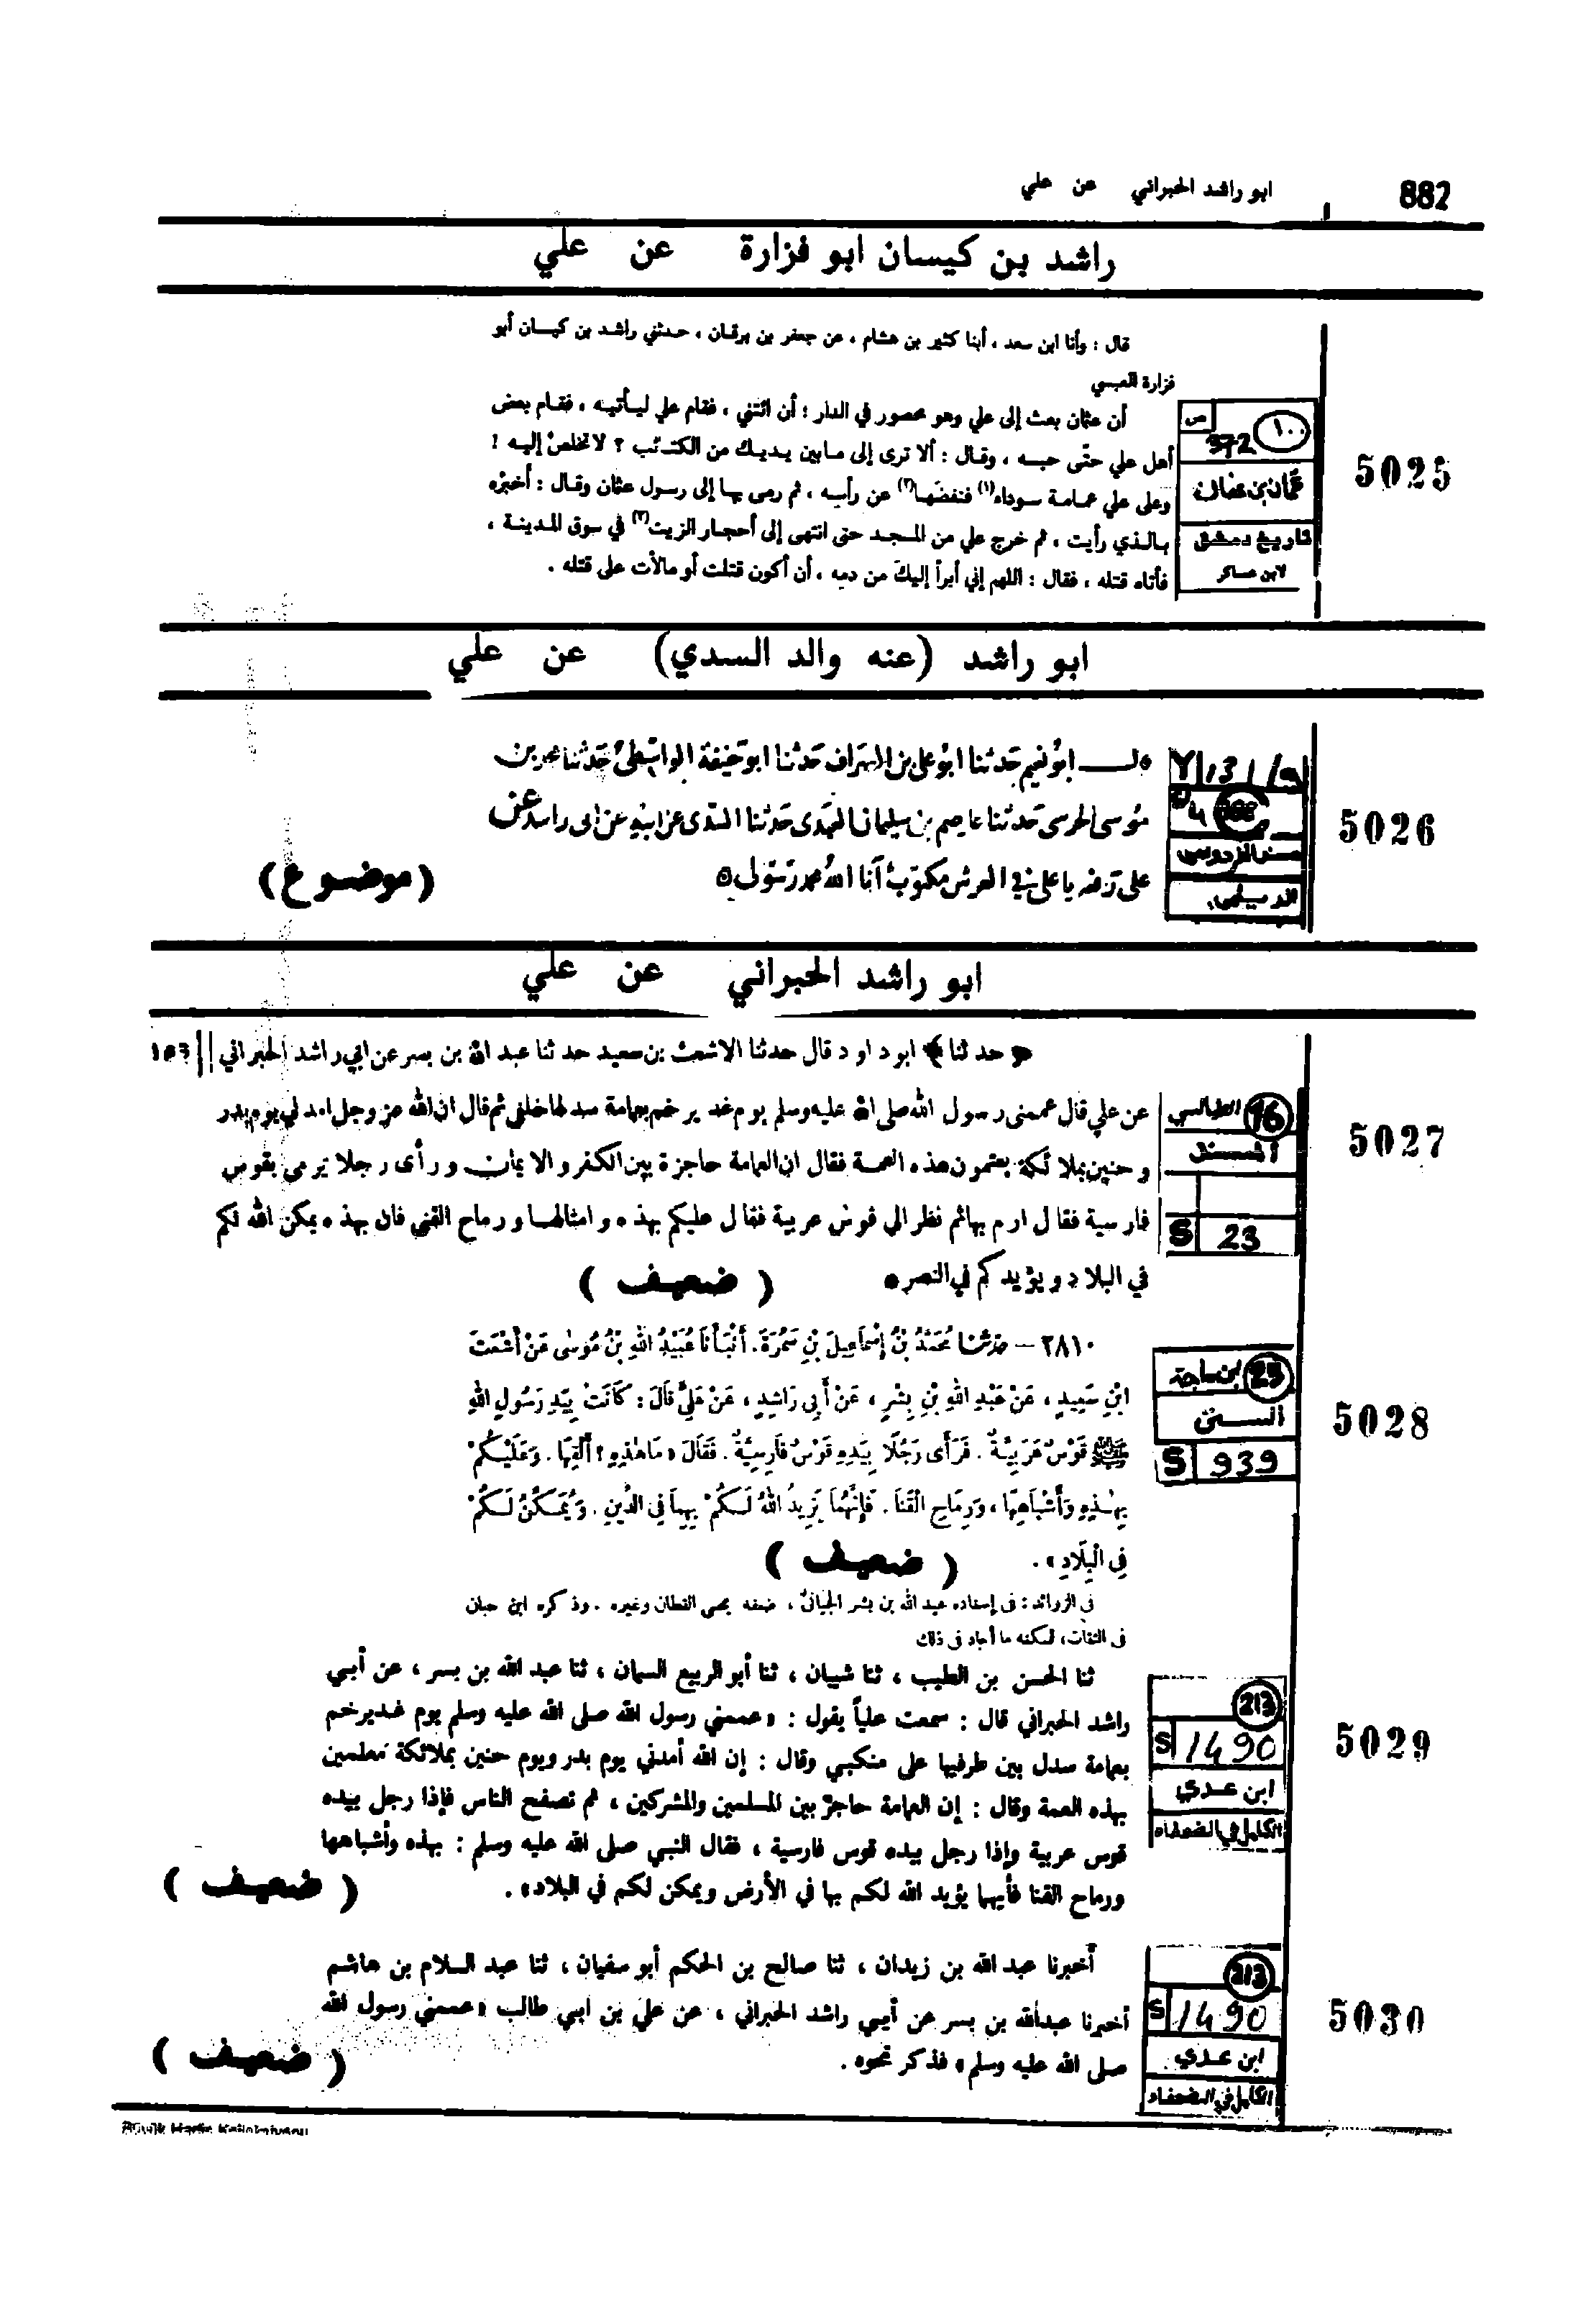 882
ابو راشد الحبراني عن علي
راشد بن كيسان ابو فزارة عن علي
قال : وأنا ابن سعد ، أبنا كثير بن هشام ، عن جعفر بن برقان ، حدثني راشد بن كيسان أبو
فزارة العبسي
أن عثمان بعث إلى علي وهو محصور في الدار : أن ائتني ، فقام علي ليأتيه ، فقام بعض
أهل علي حتّى حبسه ، وقال : ألا ترى إلى مابين يديك من الكتائب ؟ لا تخلص إليه !
وعلى علي عمامة سوداء(١) فنفضها(٢) عن رأسه ، ثم رمى بها إلى رسول عثمان وقال : أخبرْه
بالذي رأيت ، ثم خرج علي من المسجد حتى انتهى إلى أحجار الزيت(٣) في سوق المدينة ،
فأتاه قتله ، فقال : اللهم إني أبرأ إليك من دمه ، أن أكون قتلت أو مالأت على قتله .
ص ١٠٠
372
عثمان بن عفان
تاريخ دمشق
لابن عساكر
5025
ابو راشد (عنه والد السدي) عن علي
ابونعيم حدثنا ابو على بن حدثنا ابو حنيفة الواسطى حدثنا محمد بن
موسى الحرسى حدثنا عاصم بن سليمان حدثنا السدى عن ابيه عن ابى راشد عن
على رفعه يا على فى العرش مكتوب أنا الله محمد رسولى
(موضوع)
مسند الفردوس
الديلمي
5026
ابو راشد الحبراني عن علي
﴿ حدثنا ﴾ ابو داود قال حدثنا الاشعث بن سعيد حدثنا عبد الله بن بسر عن ابي راشد الحبراني
عن علي قال عممنى رسول الله صلى الله عليه وسلم يوم غدير خم بعمامة سدلها خلفى ثم قال ان الله عز وجل امدني يوم بدر
وحنين بملائكة يعتمون هذه العمة فقال ان العمامة حاجزة بين الكفر والايمان ورأى رجلا يرمى بقوس
فارسية فقال ارم بها ثم نظر الى قوس عربية فقال عليكم بهذه وامثالها ورماح القنى فان بهذه يمكن الله لكم
في البلاد ويؤيدكم في النصر
( ضعيف )
96 الطيالسي
المسند
S 23
5027
٢٨١٠ – حدثنا مُحَمَّدُ بْنُ إِسْمَاعِيلَ بْنِ سَمُرَةَ. أَنْبَأَنَا عُبَيْدُ اللهِ بْنُ مُوسَى عَنْ أَشْعَثَ
ابْنِ سَعِيدٍ ، عَنْ عَبْدِ اللهِ بْنِ بِشْرٍ ، عَنْ أَبِى رَاشِدٍ ، عَنْ عَلِيٍّ قَالَ : كَانَتْ بِيَدِ رَسُولِ اللهِ
ﷺ قَوْسٌ عَرَبِيَّةٌ . فَرَأَى رَجُلًا بِيَدِهِ قَوْسٌ فَارِسِيَّةٌ . فَقَالَ « مَا هٰذِهِ ؟ أَلْقِهَا . وَعَلَيْكُمْ
بِهٰذِهِ وَأَشْبَاهِهَا ، وَرِمَاحِ الْقَنَا . فَإِنَّهُمَا يَزِيدُ اللهُ لَكُمْ بِهِمَا فِى الدِّينِ . وَيُمَكِّنُ لَكُمْ
فِى الْبِلَادِ » .
( ضعيف )
فى الزوائد : فى إسناده عبد الله بن بشر الجيانىّ ، ضعفه يحيى القطان وغيره . وذكره ابن حبان
فى الثقات، لكنه ما أجاد فى ذلك
25 ابن ماجة
السنن
S 939
5028
ثنا الحسن بن الطيب ، ثنا شيبان ، ثنا أبو الربيع السمان ، ثنا عبد الله بن بسر ، عن أبي
راشد الحبراني قال : سمعت علياً يقول : «عممني رسول الله صلى الله عليه وسلم يوم غدير خم
بعمامة سدل بين طرفيها على منكبي وقال : إن الله أمدني يوم بدر ويوم حنين بملائكة معلمين
بهذه العمة وقال : إن العمامة حاجز بين المسلمين والمشركين ، ثم تصفح الناس فإذا رجل بيده
قوس عربية وإذا رجل بيده قوس فارسية ، فقال النبي صلى الله عليه وسلم : بهذه وأشباهها
ورماح القنا فأيهما يؤيد الله لكم بها في الأرض ويمكن لكم في البلاد» .
( ضعيف )
213
S 1490
ابن عدي
الكامل في الضعفاء
5029
أخبرنا عبد الله بن زيدان ، ثنا صالح بن الحكم أبو سفيان ، ثنا عبد السلام بن هاشم
أخبرنا عبدالله بن بسر عن أبي راشد الحبراني ، عن علي بن ابي طالب «عممني رسول الله
صلى الله عليه وسلم» فذكر نحوه .
( ضعيف )
213
S 1490
ابن عدي
الكامل في الضعفاء
5030